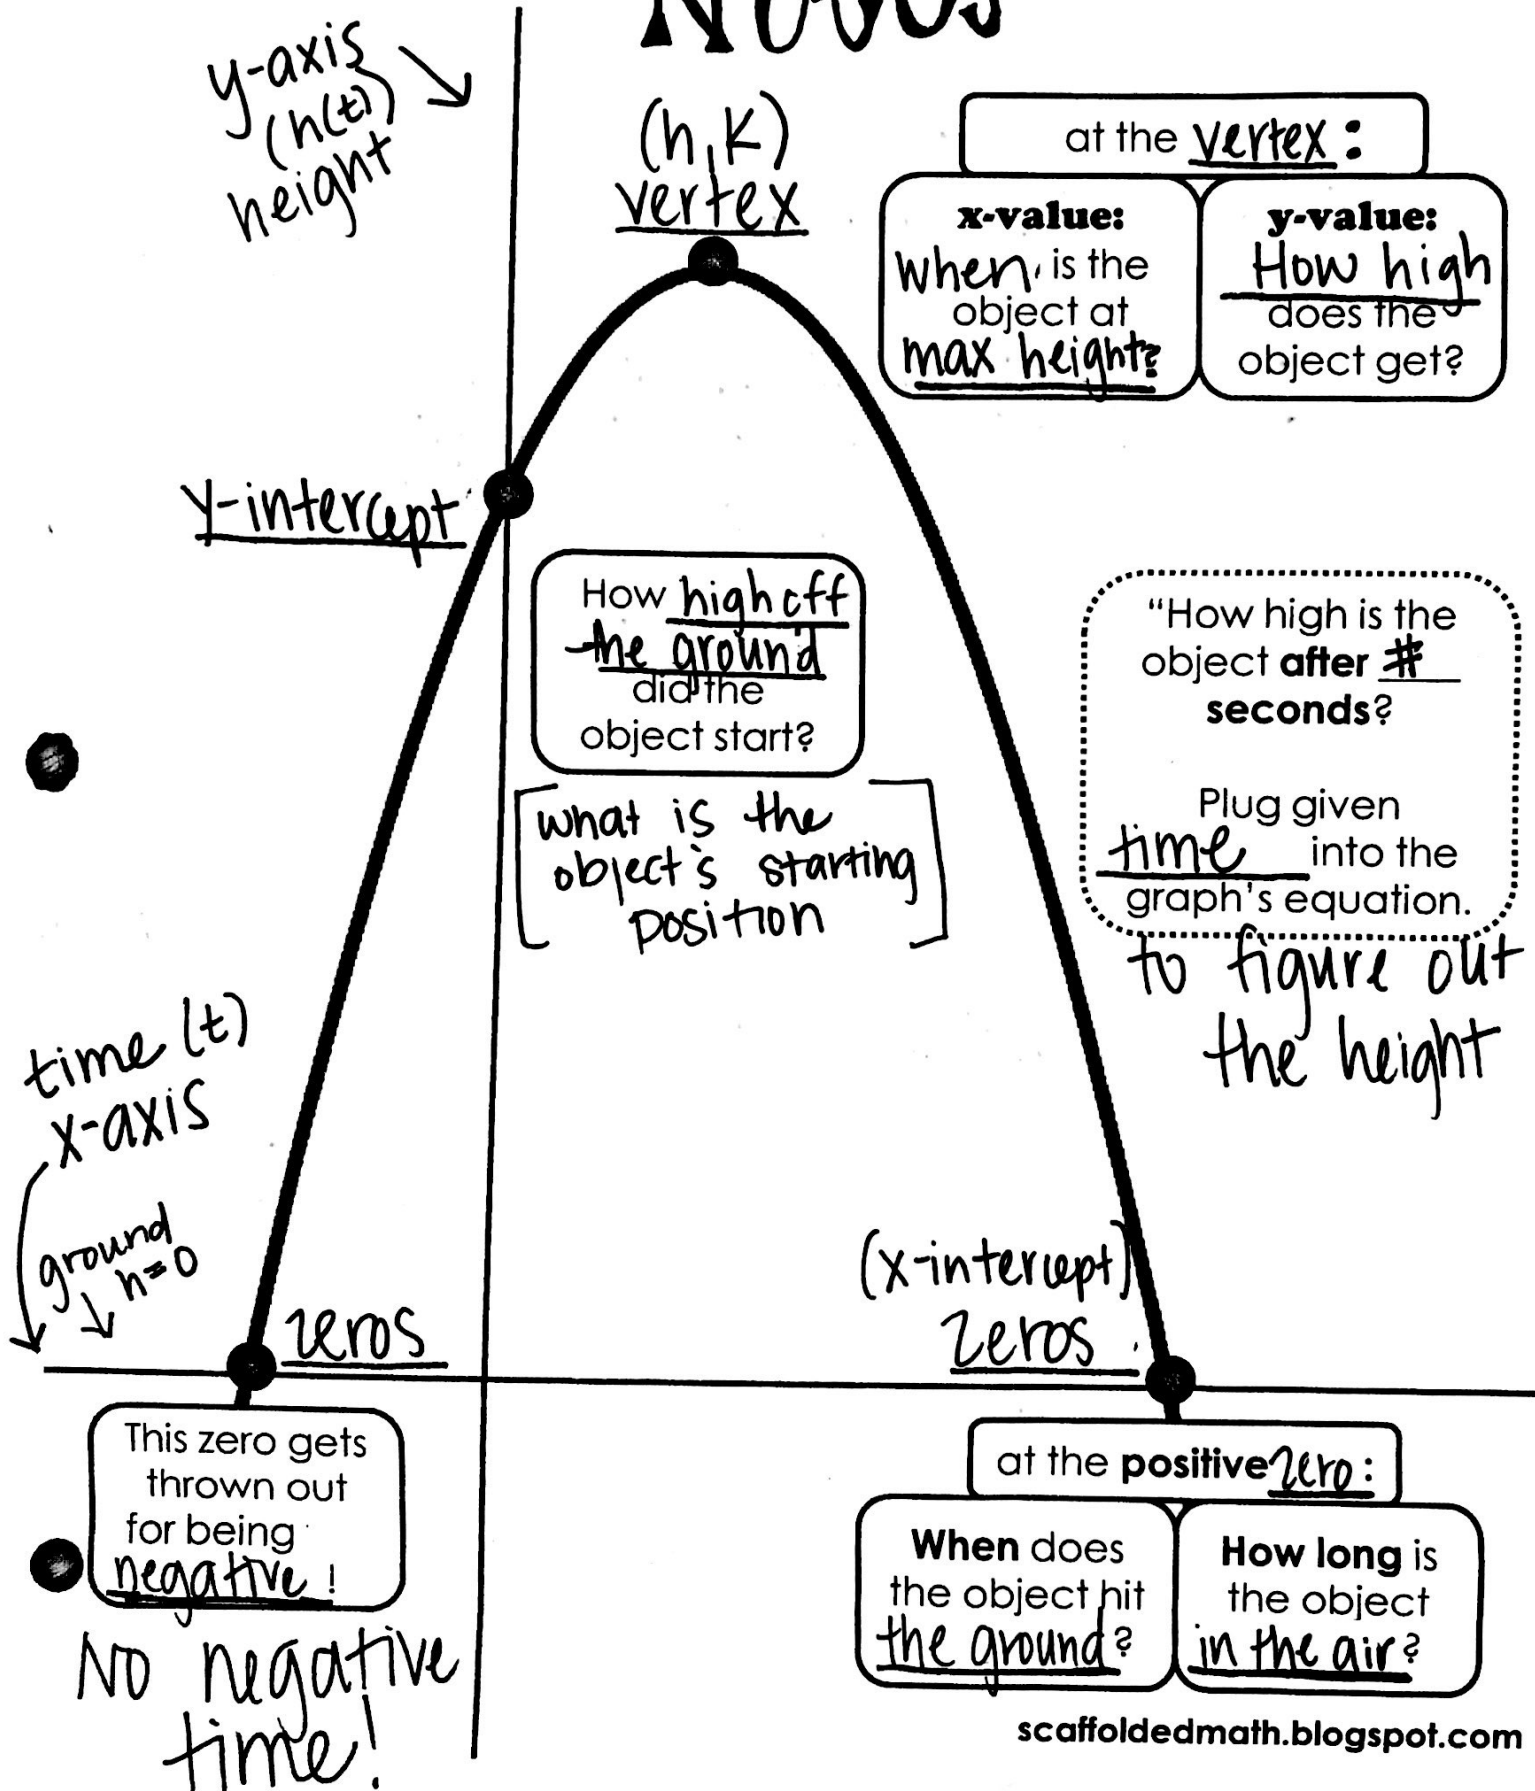 Notes
y-axis
(h(t))
height
(h,k)
vertex
at the vertex:
x-value:
when is the
object at
max height?
y-value:
How high
does the
object get?
y-intercept
How high off
the ground
did the
object start?
[what is the
object's starting
position]
"How high is the
object after #
seconds?
Plug given
time into the
graph's equation.
to figure out
the height
time (t)
x-axis
ground
h=0
zeros
(x-intercept)
zeros
This zero gets
thrown out
for being
negative!
No negative
time!
at the positive zero:
When does
the object hit
the ground?
How long is
the object
in the air?
scaffoldedmath.blogspot.com